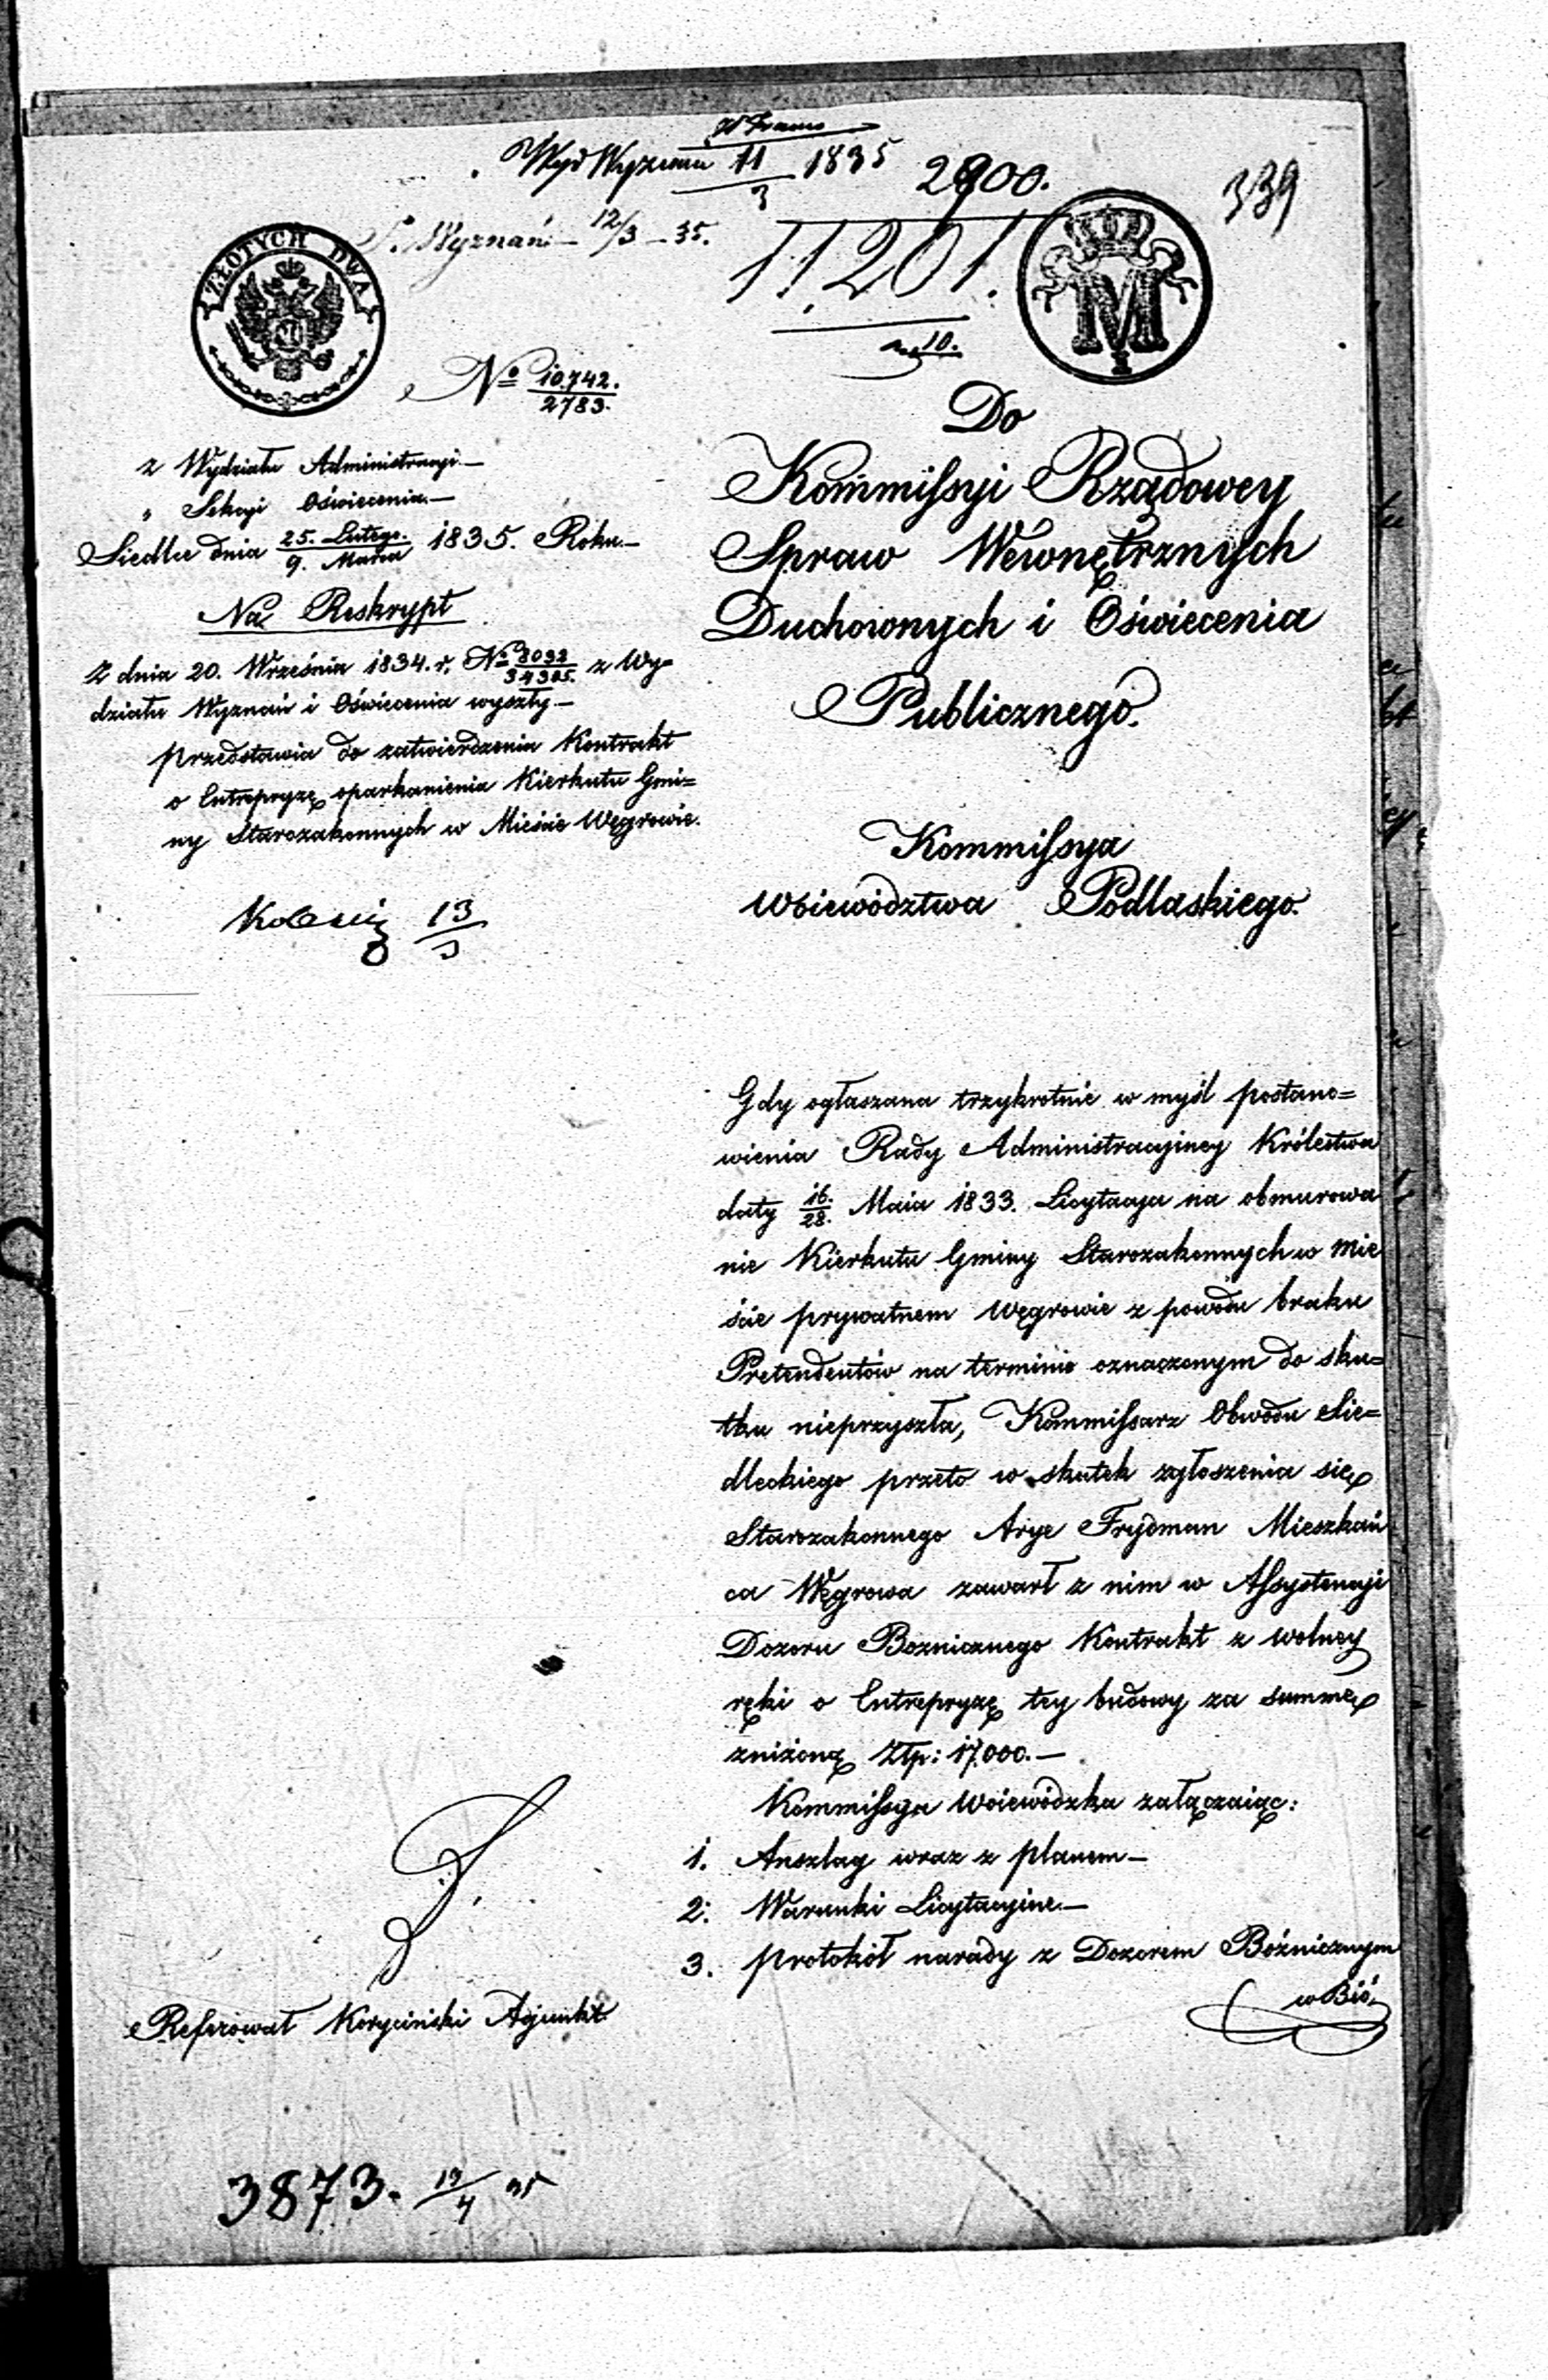 Wyd Wyznań 11/3 1835
2900.
339
S. Wyznań 12/3 – 35.
11201.
10.
ZŁOTYCH DWA
M
№ 10742./2783.
z Wydziału Administracyi.—
„ Sekcyi Oświecenia.—
Siedlce dnia 25. Lutego./9. Marca 1835. Roku.—
Na Reskrypt
Z dnia 20. Września 1834. r. № 8032/34305. z Wy=
działu Wyznań i Oświecenia wyszły.—
przedstawia do zatwierdzenia Kontrakt
o Entrepryzę oparkanienia Kierkutu Gmi=
ny Starozakonnych w Mieście Węgrowie.
13/3
Do
Kommissyi Rządowey
Spraw Wewnętrznych
Duchownych i Oświecenia
Publicznego.
Kommissya
Woiewództwa Podlaskiego.
Gdy ogłaszana trzykrotnie w myśl postano=
wienia Rady Administracyiney Królestwa
daty 16./28. Maia 1833. Licytacya na obmurowa
nie Kierkutu Gminy Starozakonnych w Mie
ście prywatnem Węgrowie z powodu braku
Pretendentów na terminie oznaczonym do sku=
tku nieprzyszła, Kommissarz Obwodu Sie=
dleckiego przeto w skutek zgłoszenia się
Starozakonnego Arye Frydman Mieszkań
ca Węgrowa zawarł z nim w Assystencyi
Dozoru Boznicznego Kontrakt z wolney
ręki o Entrepryzę tey budowy za summę
zniżoną Złp: 17,000.—
Kommissya Woiewódzka załączaiąc:
1. Anszlag wraz z planem—
2. Warunki Licytacyine.—
3. Protokół narady z Dozorem Bóźnicznym
w Bió
Referował Koryciński Adjunkt
3873. 13/4 35